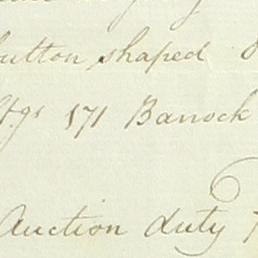 button shaped
171 Banock
Auction duty